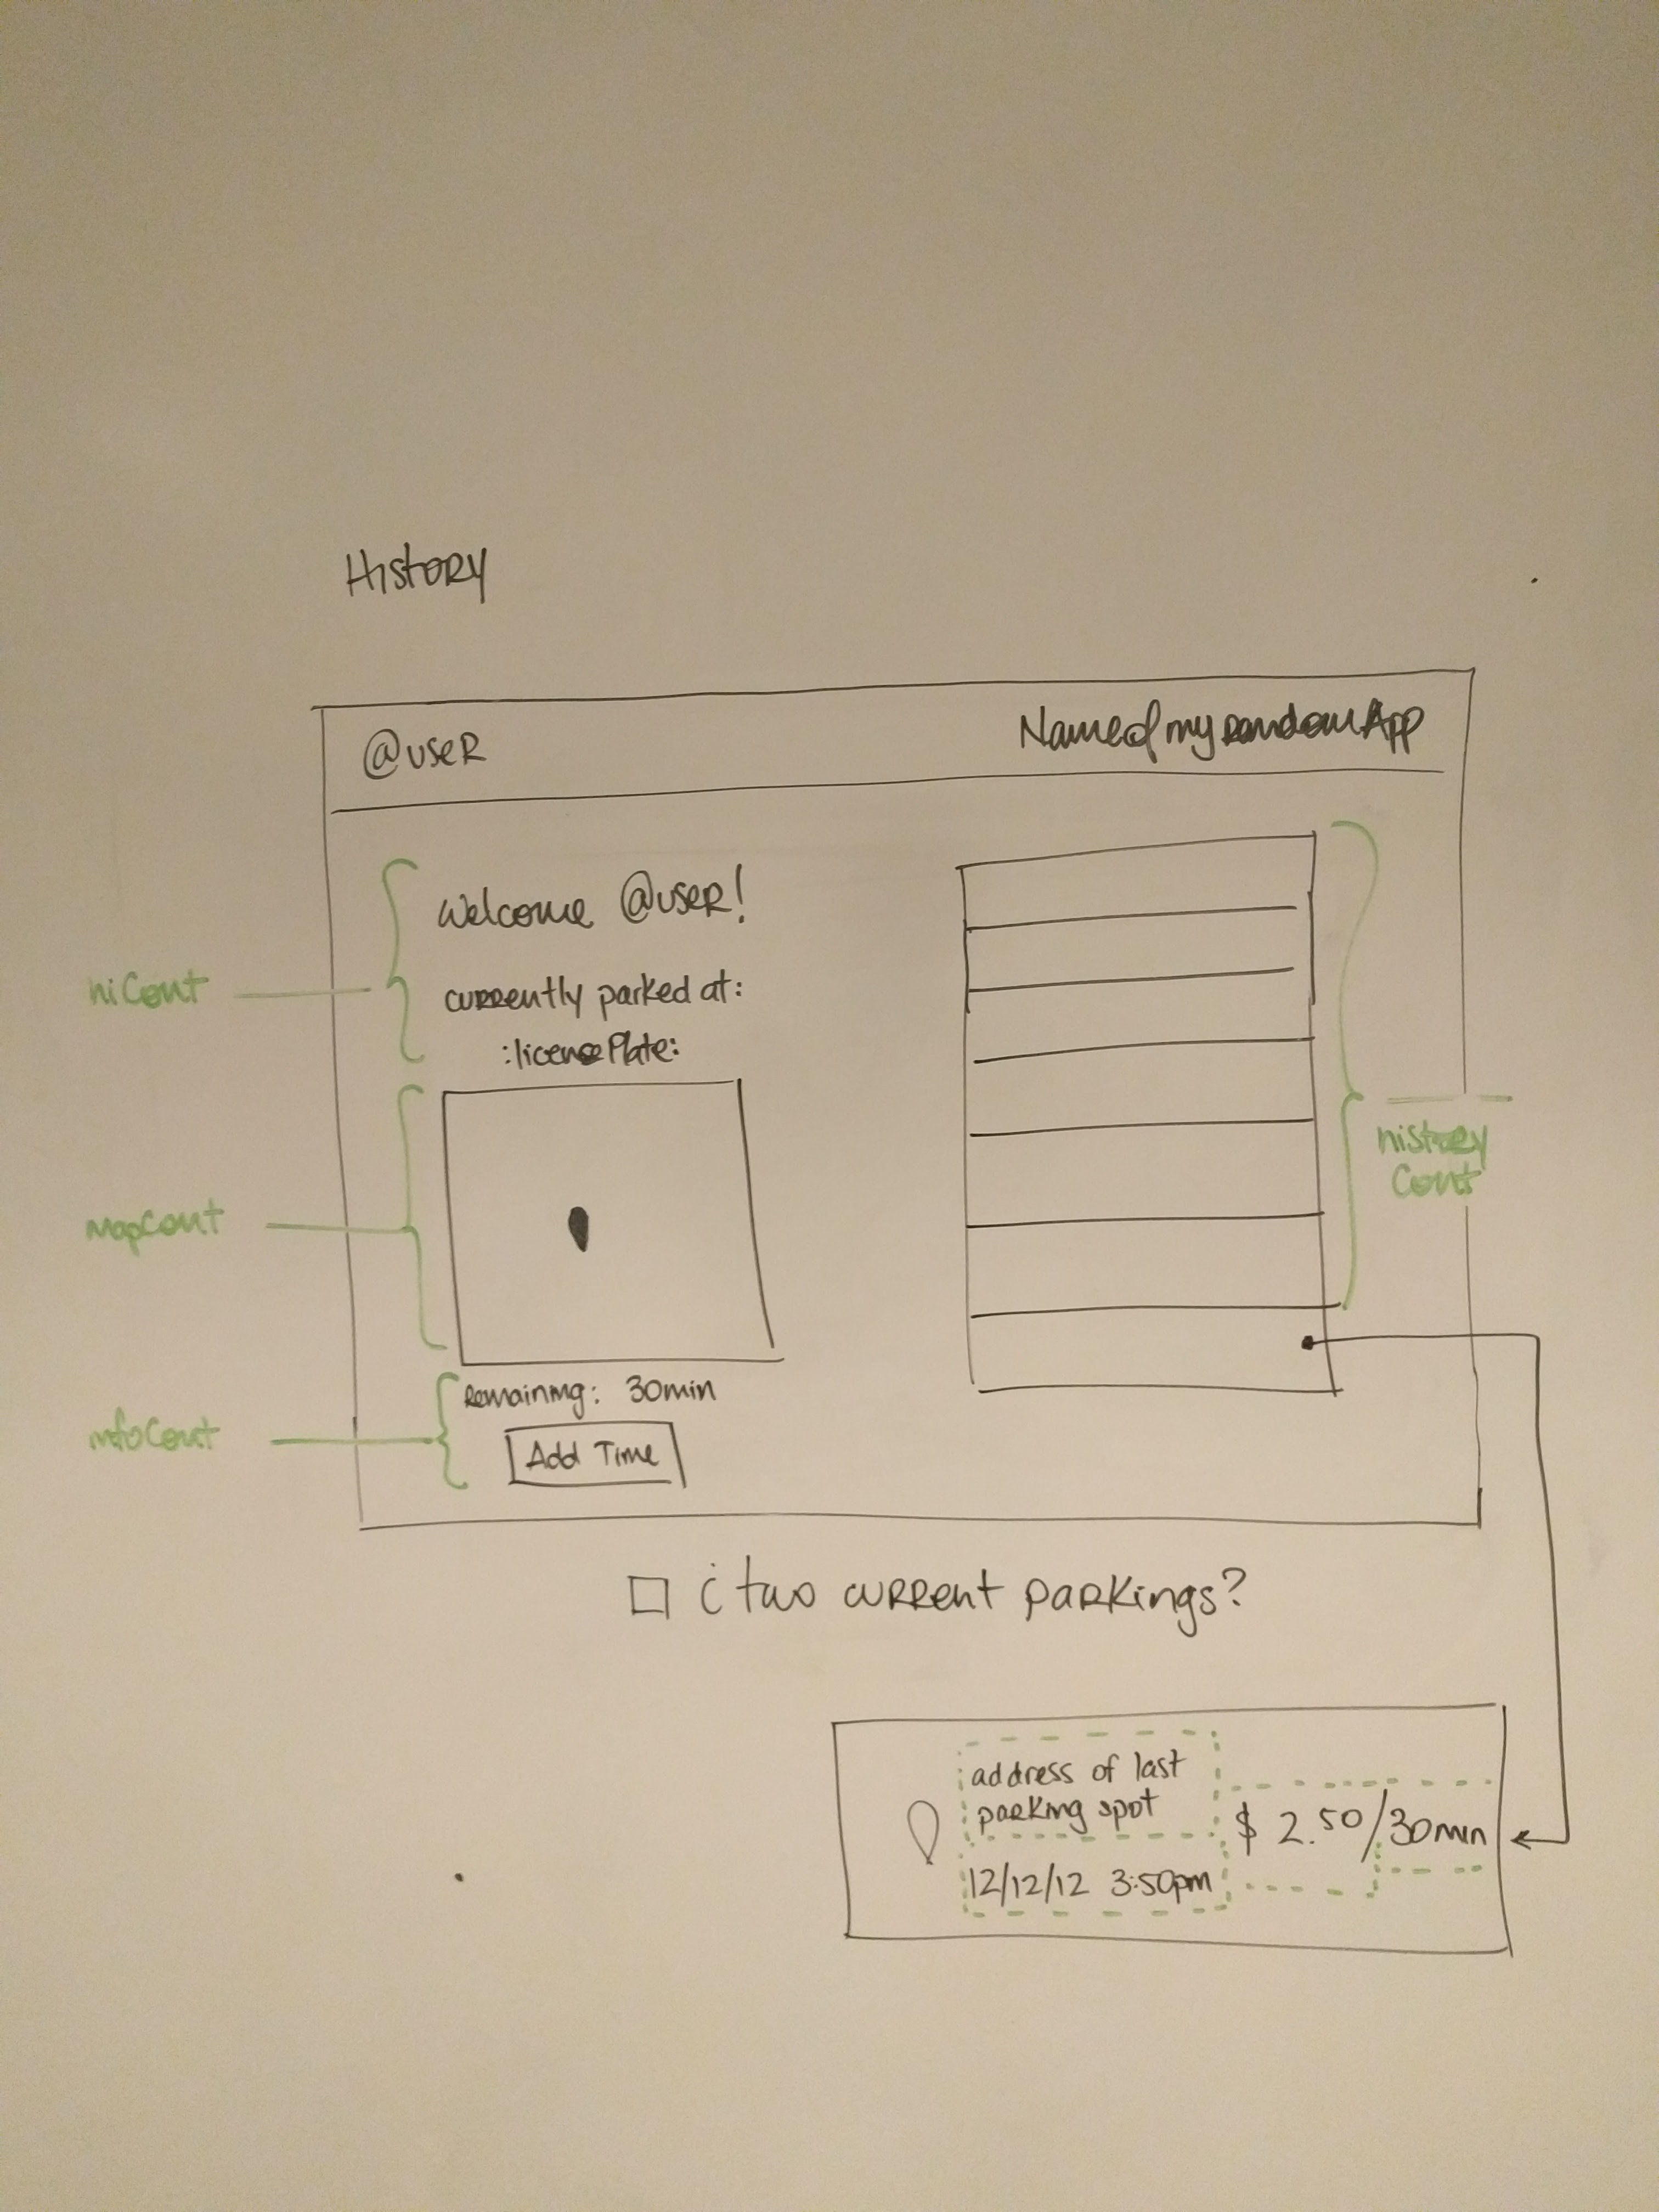 History
@user
NameofmyrandomApp
Welcome @user!
currently parked at:
:licensePlate:
hiCont
mapCont
Remaining: 30min
Add Time
infoCont
history
Cont
¿two current parkings?
address of last
parking spot
12/12/12 3:50pm
$ 2.50/30min